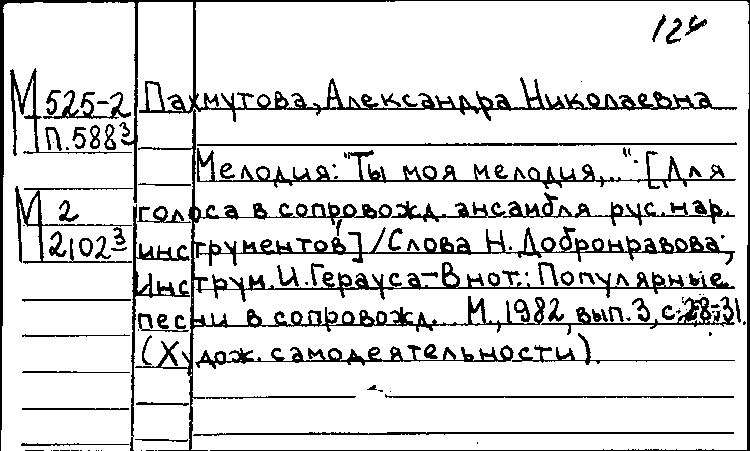 124
М 525-2 Пахмутова, Александра Николаевна
П.588³
Мелодия: "Ты моя мелодия,..": [Для
М 2 голоса в сопровожд. ансамбля рус. нар.
2102³ инструментов] / Слова Н. Добронравова;
Инструм. И. Герауса - В нот.: Популярные
песни в сопровожд. М., 1982, вып. 3, с. 28-31.
(Худож. самодеятельности).